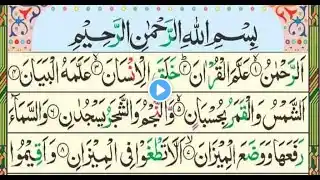 بِسْمِ اللهِ الرَّحْمٰنِ الرَّحِيْمِ
اَلرَّحْمٰنُ ۝١ عَلَّمَ الْقُرْاٰنَ ۝٢ خَلَقَ الْاِنْسَانَ ۝٣ عَلَّمَهُ الْبَيَانَ ۝٤
اَلشَّمْسُ وَالْقَمَرُ بِحُسْبَانٍ ۝٥ وَّالنَّجْمُ وَالشَّجَرُ يَسْجُدٰنِ ۝٦ وَالسَّمَآءَ
رَفَعَهَا وَوَضَعَ الْمِيْزَانَ ۝٧ اَلَّا تَطْغَوْا فِى الْمِيْزَانِ ۝٨ وَاَقِيْمُوا